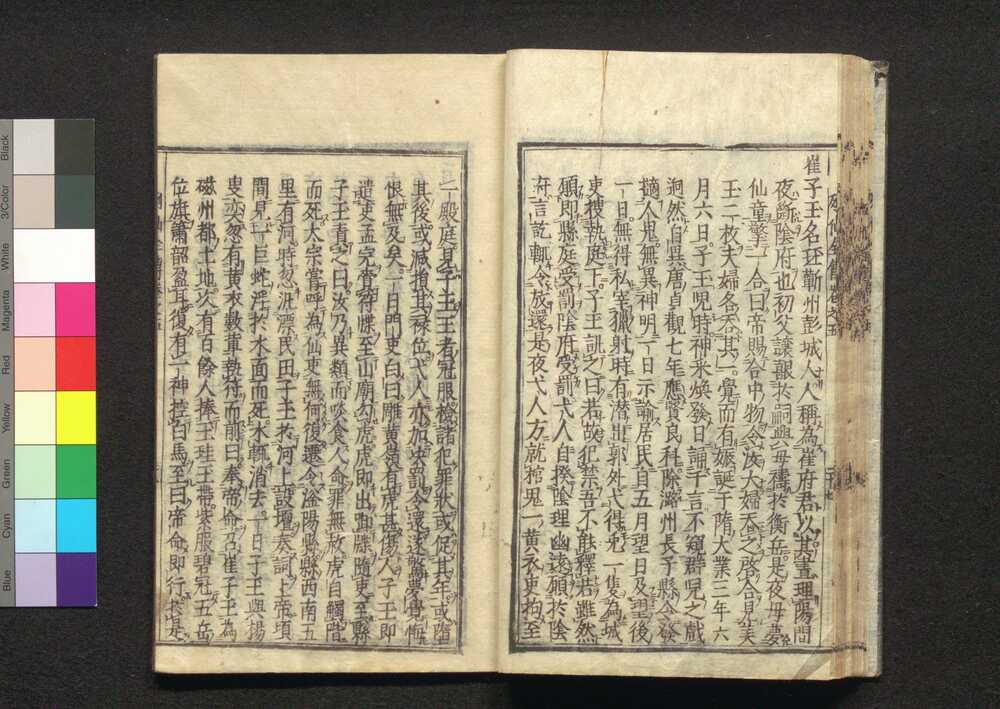 崔子玉名珏蘄州彭城人人稱為崔府君以其晝理陽間
夜斷陰府也初父讓艱於嗣與母禱於衡岳是夜母夢
仙童擎一合曰帝賜合中物令汝夫婦吞之啓合見美
玉二枚夫婦各吞其一覺而有娠誕于隋大業三年六
月六日子玉兒時神采煥發日誦千言不窺群兒之戲
迥然自異唐貞觀七年應賢良科除潞州長子縣令發
摘人鬼無異神明一日示諭居民自五月望日及望後
一日無得私宰獵射時有潛出郭外弋得兔一隻為城
吏搜執庭下子玉訊之曰若故犯禁吾不敢釋若雖然
願即縣庭受罰陰府受罰弋人自揆陰理幽遠願於陰
府言訖輒令放還是夜弋人方就棺鬼一黃衣吏拘至
一殿庭見子玉王者冠服檢諸犯罪狀或促其年或墮
其後或減損其祿位弋人亦加決罰令還遂驚夢覺悔
恨無及矣一日門吏白曰雕黃嶺有虎甚傷人子玉即
遣吏孟完賫符牒至山廟勾虎虎即出啣牒隨吏至縣
子玉責之曰汝乃異類而啖食人命罪無赦虎自觸階
而死太宗嘗呼為仙吏無何復遷令滏陽縣縣西南五
里有河時忽泚漂民田子玉於河上設壇奏詞上帝頃
間見一巨蛇浮於水面而死水輒消去一日子玉與楊
叟奕忽有黃衣數輩執符而前曰奉帝命召崔子玉為
磁州都土地次有百餘人捧玉珪玉帶紫服碧冠五岳
位旗簫韶盈耳復有一神控白馬至曰帝命即行於是